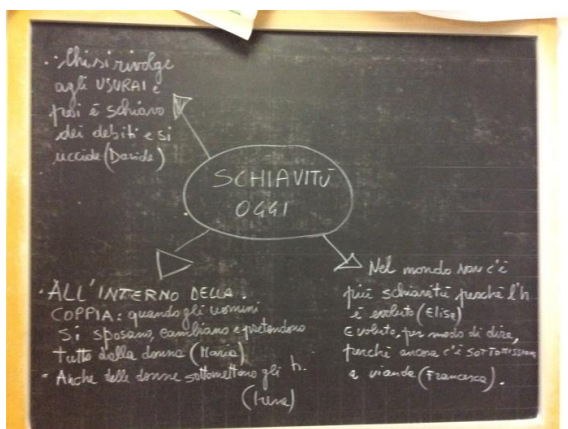 · Chi si rivolge
agli USURAI e
poi è schiavo
dei debiti e si
uccide (Davide)
SCHIAVITÙ
OGGI
· ALL'INTERNO DELLA
COPPIA: quando gli uomini
si sposano, cambiano e pretendono
tutto dalla donna (Maria)
· Anche delle donne sottomettono gli h.
(Irene)
Nel mondo non c'è
più schiavitù perché l'h
è evoluto (Elisa)
Evoluto, per modo di dire,
perché ancora c'è
e (Francesca).